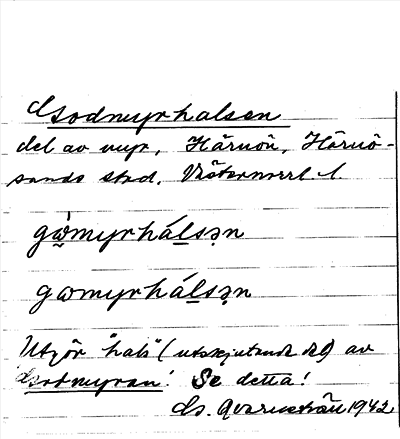 Godmyrhalsen
del av myr, Härnön, Härnö-
sands stad. Västernorrl. l.
gὼmyrhálsən
gωmyrhálsən
Utgör "hals" (utskjutande del) av
Godmyran! Se detta!
G. Qvarnström 1942